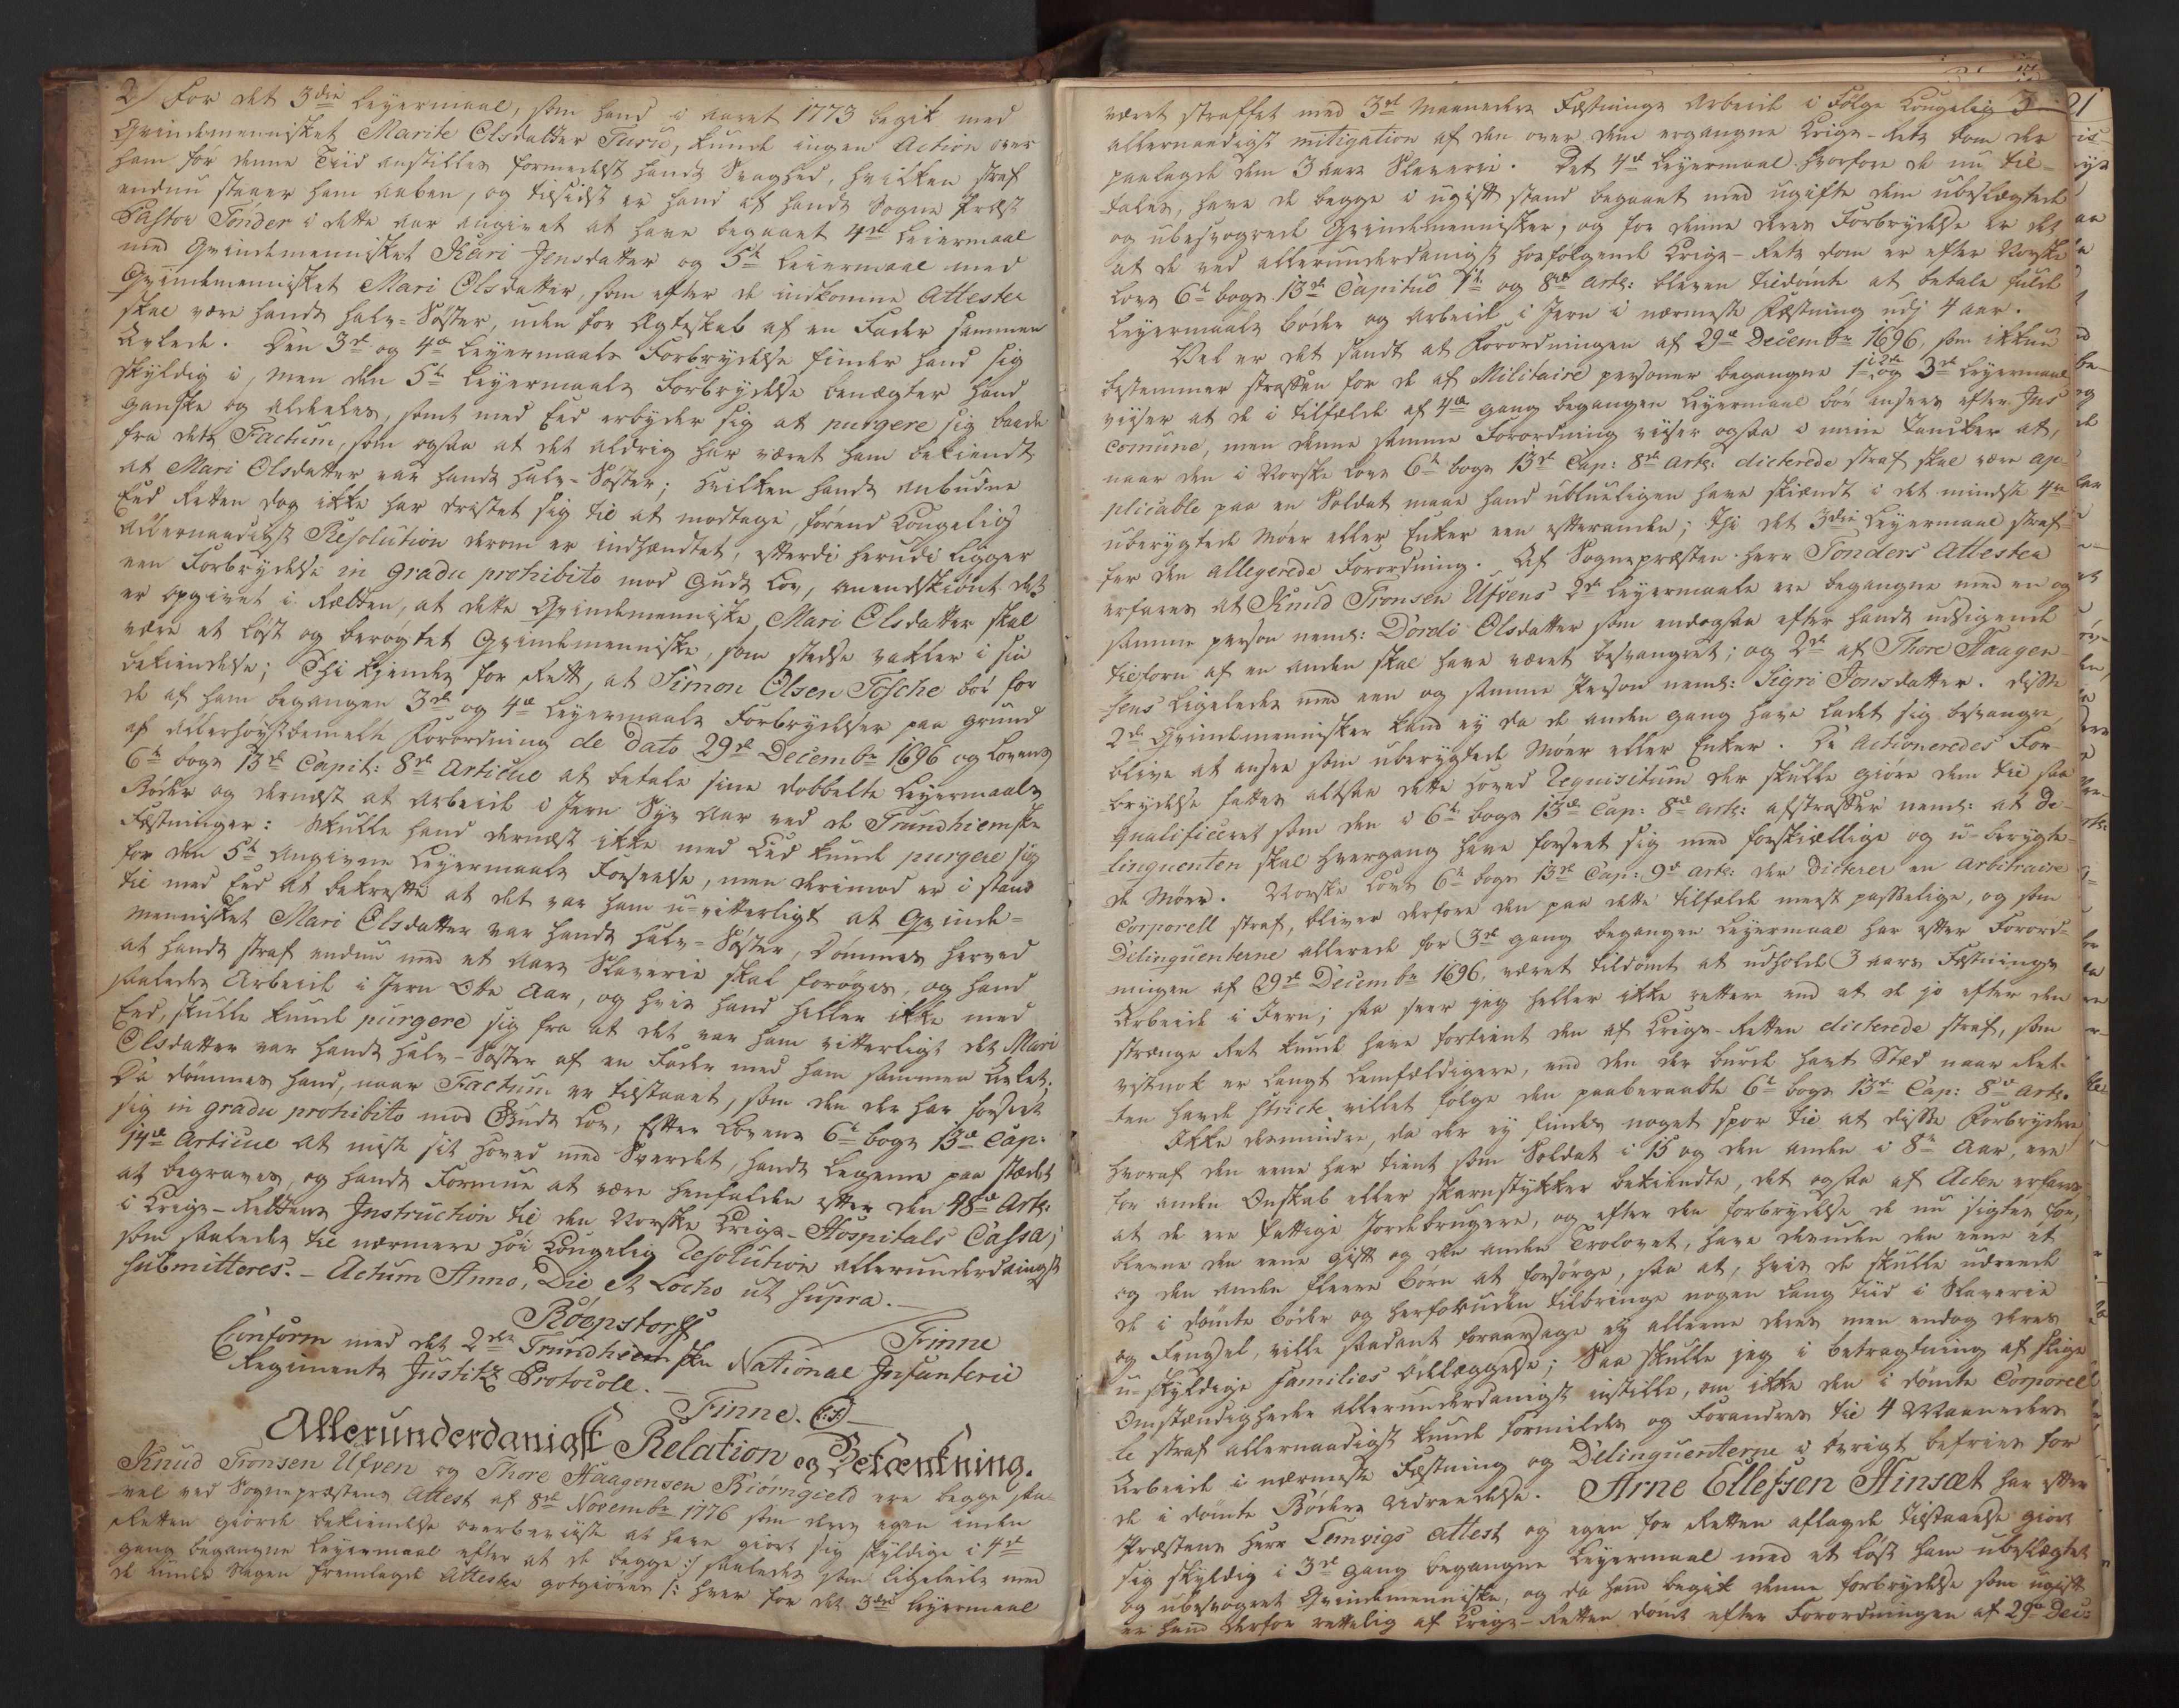 2/ For det 3die Leyermaal, som hand i aaret 1773 begik med
Qvindemennisket Marite Olsdatter Turu, kunde ingen Action over
ham før denne Tiid anstilles formedelst hands Svaghed, hvilken straf
endnu staaer ham aaben, og tilsidst er hand af hands Sogne Præst
Pastor Tønder i dette aar angivet at have begaaet 4de Leiermaal
med Qvindemennisket Kari Jensdatter og 5te Leiermaal med
Qvindemennisket Mari Olsdatter, som efter de indkomne Attester
skal være hands halv-Søster, uden for Ægteskab af en Fader sammen
Avlede. Den 3de og 4de Leyermaals Forbrydelse finder hand sig
skyldig i, men den 5te Leyermaals Forbrydelse benægter hand
ganske og aldeeles, samt med Eed erbyder sig at purgere sig baade
fra dets Factum, som ogsaa at det aldrig har været ham bekiendt
at Mari Olsdatter var hands halv-Søster; hvilken hands anbudne
Eed Retten dog ikke har dristet sig til at modtage, førend Kongelig
allernaadigst Resolution derom er indhændtet, efterdi herudi ligger
een Forbrydelse in gradu prohibito mod Guds Lov, anendskiønt det
er opgivet i Rætten, at dette Qvindemenniske, Mari Olsdatter skal
være et løst og berøgtet Qvindemenniske, som stedse vakler i sin
bekiendelse; Thi kiendes for Rett, at Simon Olsen Tosche bør for
de af ham begangen 3de og 4de Leyermaals Forbrydelser paa grund
af allerhøystbemelte Forordning de dato 29de Decembr 1696 og Lovens
6te bogs 13de Capit: 8de Articul at betale sine dobbelte Leyermaals
Bøder og dernæst at arbeide i Jern Syv Aar ved de Trundhiemske
Fæstninger: Skulle hand dernæst ikke med Eed kunde purgere sig
for den 5te angivne Leyermaals Forseelse, men derimod er i stand
til med Eed at bekræfte at det var ham u-vitterligt at Qvinde-
mennisket Mari Olsdatter var hands halv-Søster, Dømmes herved
at hands straf endnu med et aars Slaverie skal forøges, og hand
saaledes Arbeide i Jern Otte Aar, og hvis hand heller ikke med
Eed, skulle kunde purgere sig fra at det var ham vitterligt det Mari
Olsdatter var hands halv-Søster af en Fader med ham sammen Avlet.
Da dømmes hand, naar Factum er tilstaaet, som den der har forseet
sig in gradu prohibito mod Guds Lov, Efter Lovens 6te bogs 13de Cap:
14de Articul at miste sit Hoved med Sverdet, hands Legeme paa stædet
at begraves, og hands Formue at være henfalden efter den 48de Art:
i Krigs-Rettens Instruction til den Norske Krigs-Hospitals Cassa;
som saaledes til nærmere høi Kongelig Resolution allerunderdanigst
submitteres. - Actum Anno, Die et Locho ut supra. -
Röepstorff
Finne
Conform med det 2det Trundhiemske National Infanterie
Regiments Justitz Protocoll. -
Finne. (L:S)
Allerunderdanigst Relation og Betænkning.
Knud Tronsen Ufven og Thore Haagensen Biørngield ere begge saa-
-vel ved Sognepræstens Attest af 8de Novembr 1776 som deres egen inden
Retten giorde bekiendelse overbeviiste at have giort sig skyldige i 4de
gang begangne Leyermaal efter at de begge :/ saaledes som ligeledes med
de under Sagen fremlagde Attester godtgiøres /: hver for det 3die Leyermaal
3
været straffet med 3de Maaneders Fæstnings Arbeide i Følge Kongelig
allernaadigst mitigation af den over dem ergangne Krigs-Rets dom der
paalagde dem 3 aars Slaverie. Det 4de Leyermaal hvorfore de nu til-
tales, have de begge i ugift stand begaaet med ugifte dem ubeslægtede
og ubesvogrede Qvindemennisker, og for denne deres Forbrydelse er det
at de ved allerunderdanigst hosfølgende Krigs-Rets dom er efter Norske
Lovs 6te bogs 13de Capitul 1te og 8de art: bleven tildømte at betale fulde
Leyermaals bøder og Arbeide i Jern i nærmeste Fæstning udj 4 aar.
Vel er det sandt at Forordningen af 29de Decembr 1696, som ikkun
bestemmer straffen for de af Militaire personer begangne 1te, 2de og 3de Leyermaal
viiser at de i tilfælde af 4de gang begangen Leyermaal bør ansees efter Jus
Comune, men denne samme Forordning viiser ogsaa i mine Tancker at,
naar den i Norske Lovs 6te bogs 13de Cap: 8de art: dicterede straf skal være ap-
plicable paa en Soldat maae hand ublueligen have skiændt i det mindste 4re
uberygtede Møer eller Enker een efteranden; Thi det 3die Leyermaal straf-
fer den allegerede Forordning. Af Sognepræsten Herr Tønders Attester
erfares at Knud Tronsen Ufvens 2de Leyermaale ere begangne med en og
samme person nemt: Dordi Olsdatter som endogsaa efter hands udsigende
tilforn af en anden skal have været besvangret; og 2de af Thore Haagen-
sens ligeledes med een og samme Person neml: Sigri Jonsdatter. Disse
2de Qvindemennisker kand ey da de anden gang have ladet sig besvangre,
blive at ansee som uberygtede Møer eller Enker. De Actioneredes For-
brydelse fattes altsaa dette hoved Requisitum der skulle giøre dem til saa
qvalificeret som den i 6te bogs 13de Cap: 8de art: afstraffer neml: at De-
linqventen skal hvergang have forseet sig med forskiællige og u-berygte-
de Møer. Norske Lovs 6te bogs 13de Cap: 9de art: der Dicterer en arbitraire
Corporell straf, bliver derfore den paa dette tilfælde meest passelige, og som
Delinqventerne allerede for 3de gang begangen Leyermaal har efter Forord-
ningen af 29de Decembr 1696. været tildømt at udholde 3 aars Fæstnings
Arbeide i Jern; saa seer jeg heller ikke rettere end at de jo efter den
strænge Ret kunde have fortient den af Krigs-Retten dicterede straf, som
vistnok er langt lemfældigere, end den der burde havt Sted naar Ret-
ten havde stricte villet følge den paaberaabte 6te bogs 13de Cap: 8de art.
Ikke desmindre, da der ey findes noget spor til at disse Forbrydere,
hvoraf den eene har tient som Soldat i 15 og den anden i 8te Aar, ere
for anden Ondskab eller skarnstykker bekiendte, det ogsaa af Acten erfares
at de ere fattige Jordebrugere, og efter den forbrydelse de nu sigtes for,
blevne den eene gift og den anden Trolovet, have desuden den eene et
og den anden fleere børn at forsørge, saa at, hvis de skulle udreede
de i dømte bøder og herforuden tilbringe nogen lang Tiid i Slaverie
og Fengsel, ville saadant foraarsage ey alleene deres men endog deres
u-skyldige Families ødelæggelse; Saa skulle jeg i betragtning af slige
Omstændigheder allerunderdanigst instille, om ikke den i dømte Corporel-
le straf allernaadigst kunde formildes og Forandres til 4 Maaneders
Arbeide i nærmeste Fæstning og Delinqventerne i øvrigt befries for
de i dømte Bøders Udreedelse. Arne Ellefsen Hinsæt har efter
Præstens Herr Lemvigs attest og egen for Retten aflagde tilstaaelse giort
sig skyldig i 3de gang begangne Leyermaal med et løst ham ubeslægtet
og ubesvogret Qvindemenniske, og da hand begik denne forbrydelse som ugift
er hand derfor rettelig af Krigs-Retten dømt efter Forordningen af 29de Dec: